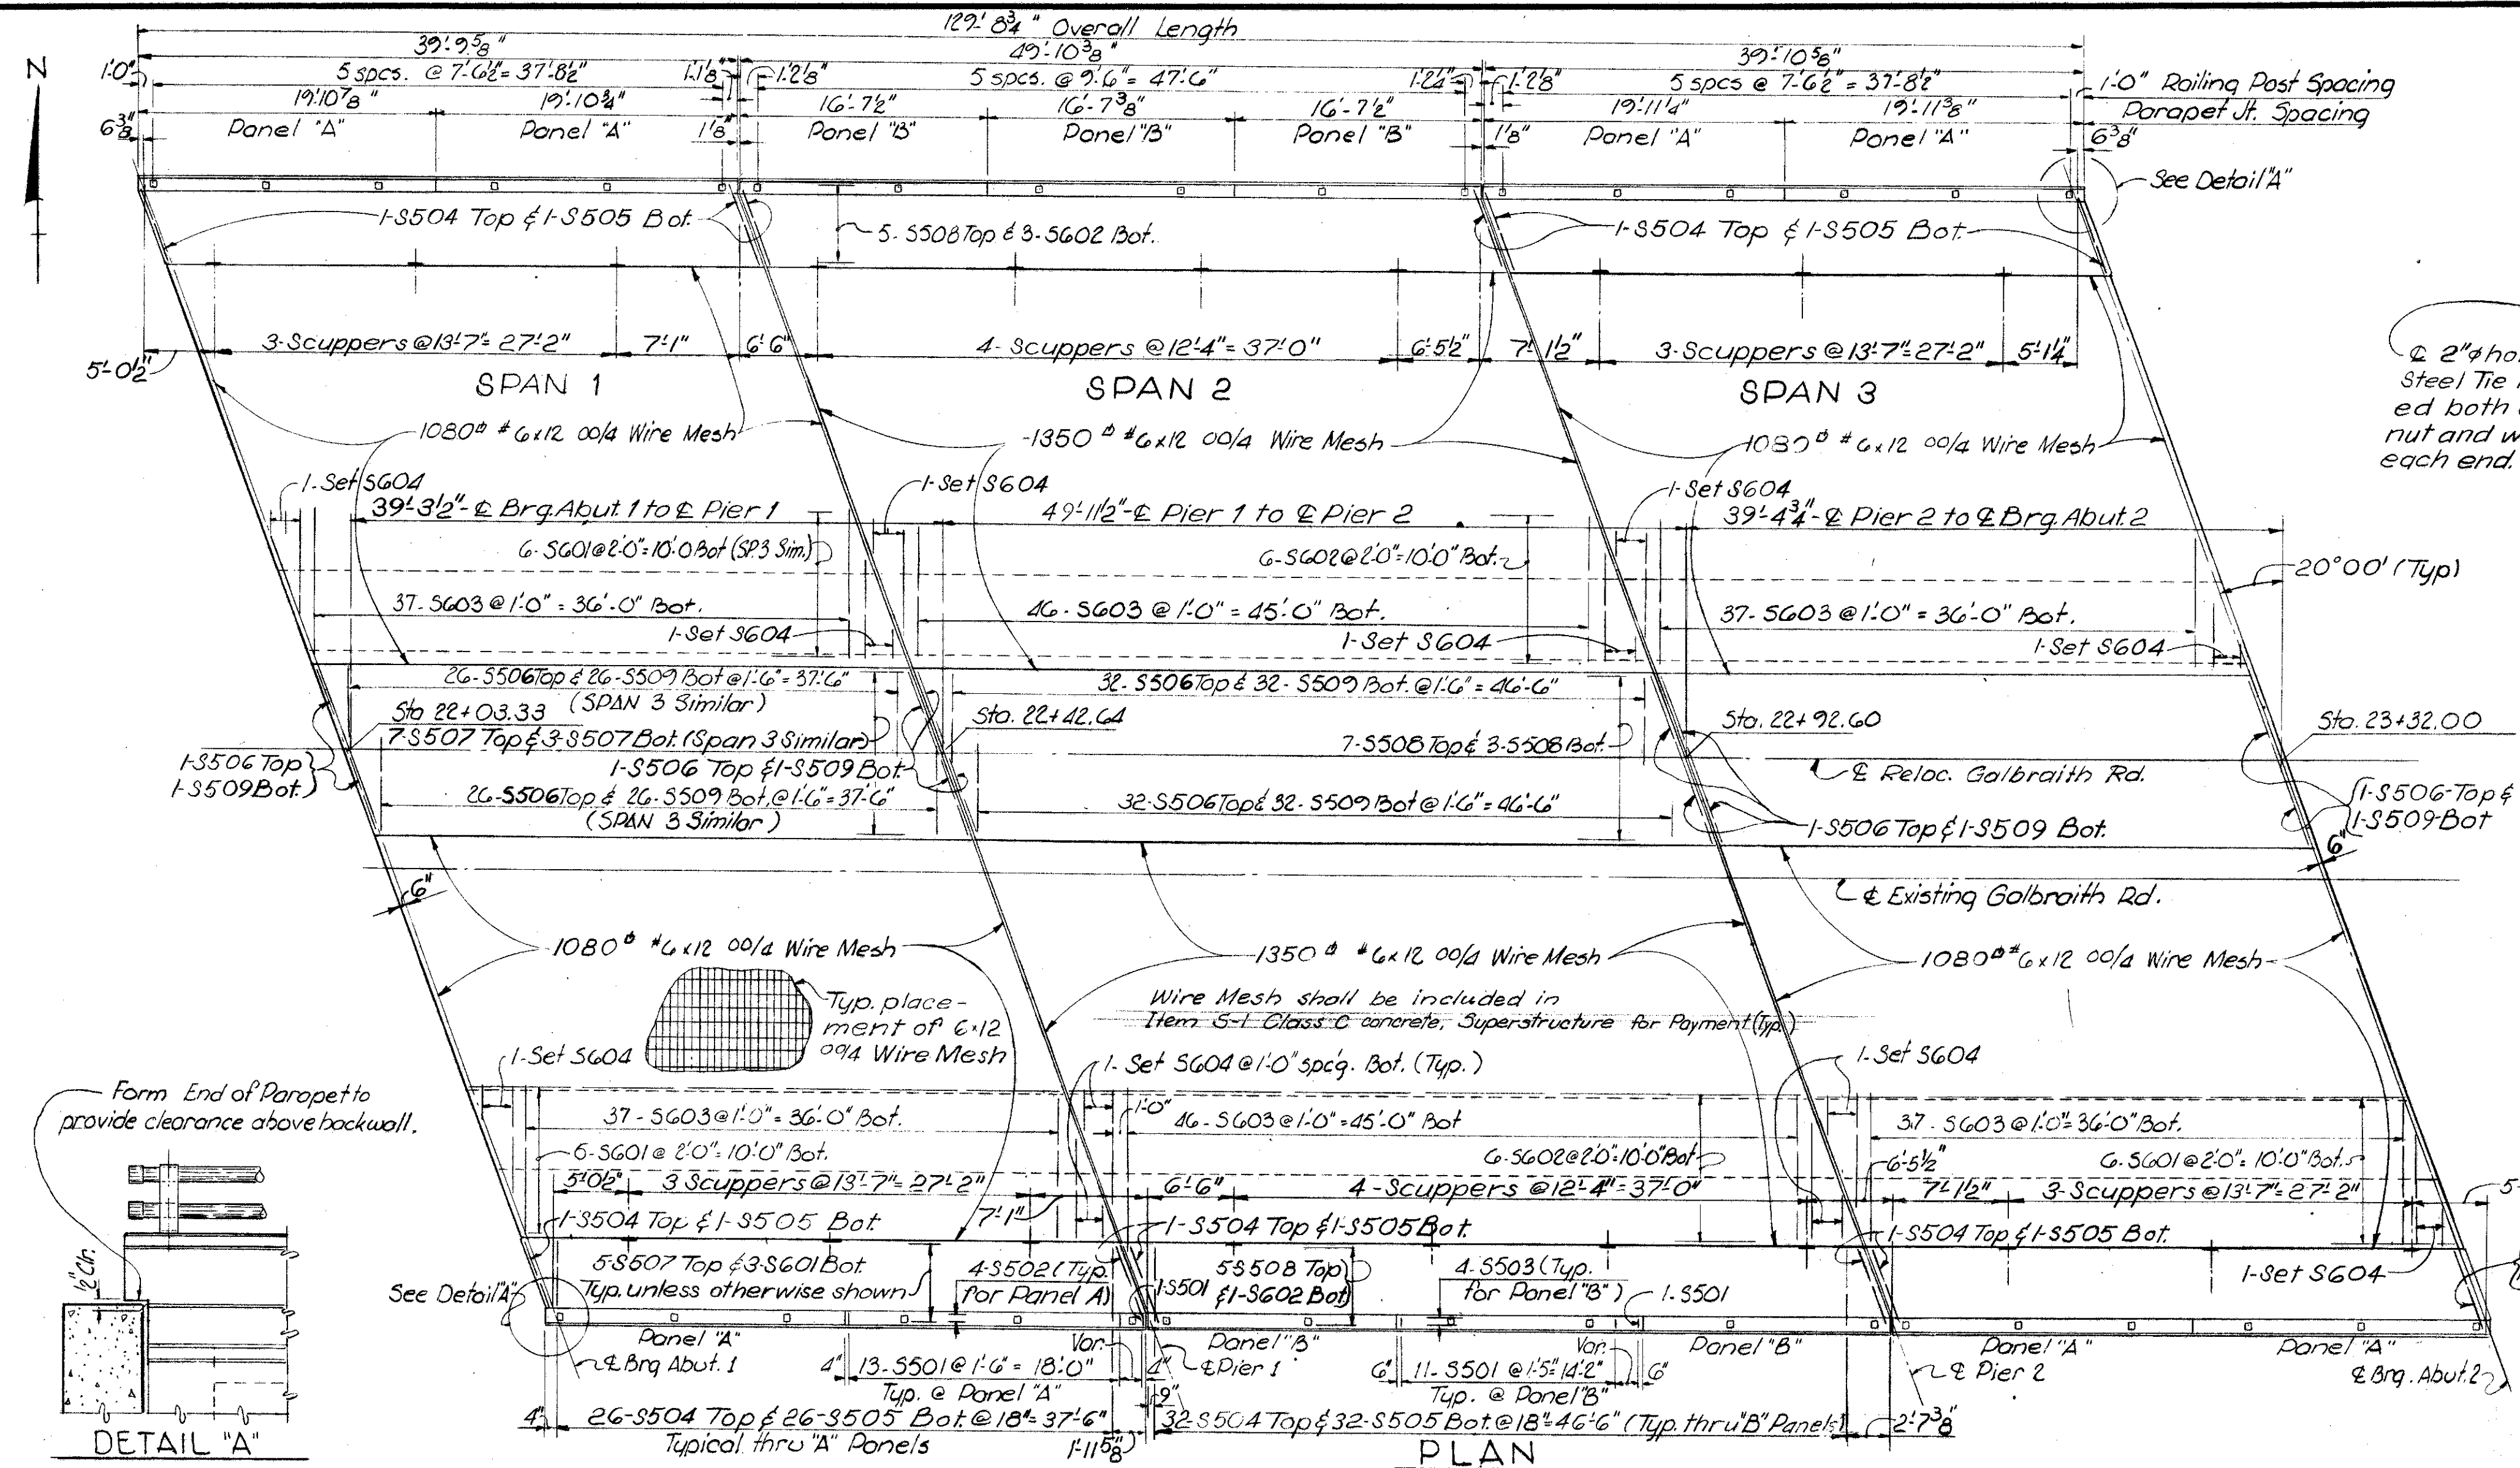 129'-8 3/4" Overall Length
39'-9 5/8"
49'-10 3/8"
39'-10 5/8"
N
1'-0"
5 spcs. @ 7'-6 1/2" = 37'-8 1/2"
1'-1 1/8"
1'-2 1/8"
5 spcs. @ 9'-6" = 47'-6"
1'-2 1/4"
1'-2 1/8"
5 spcs @ 7'-6 1/2" = 37'-8 1/2"
1'-0" Railing Post Spacing
19'-10 7/8"
19'-10 3/4"
16'-7 1/2"
16'-7 3/8"
16'-7 1/2"
19'-11 1/4"
19'-11 3/8"
Parapet Jt. Spacing
6 3/8"
Panel "A"
Panel "A"
1 1/8"
Panel "B"
Panel "B"
Panel "B"
1 1/8"
Panel "A"
Panel "A"
6 3/8"
See Detail "A"
1-S504 Top & 1-S505 Bot.
5-S508 Top & 3-S602 Bot.
1-S504 Top & 1-S505 Bot.
5'-0 1/2"
3-Scuppers @ 13'-7" = 27'-2"
7'-1"
6'-6"
4-Scuppers @ 12'-4" = 37'-0"
6'-5 1/2"
7'-1 1/2"
3-Scuppers @ 13'-7" = 27'-2"
5'-1 1/4"
SPAN 1
SPAN 2
SPAN 3
℄ 2"φ ho
Steel Tie
ed both
nut and w
each end.
1080 # 6x12 00/4 Wire Mesh
1350 # 6x12 00/4 Wire Mesh
1080 # 6x12 00/4 Wire Mesh
1-Set S604
1-Set S604
1-Set S604
39'-3 1/2" - ℄ Brg. Abut. 1 to ℄ Pier 1
49'-11 1/2" - ℄ Pier 1 to ℄ Pier 2
39'-4 3/4" - ℄ Pier 2 to ℄ Brg. Abut. 2
6-S601 @ 2'-0" = 10'-0 Bot (SP. 3 Sim.)
6-S602 @ 2'-0" = 10'-0" Bot.
20°00' (Typ)
37-S603 @ 1'-0" = 36'-0" Bot.
46-S603 @ 1'-0" = 45'-0" Bot.
37-S603 @ 1'-0" = 36'-0" Bot.
1-Set S604
1-Set S604
1-Set S604
26-S506 Top & 26-S509 Bot @ 1'-6" = 37'-6"
(SPAN 3 Similar)
32-S506 Top & 32-S509 Bot. @ 1'-6" = 46'-6"
Sta 22+03.33
Sta. 22+42.64
Sta. 22+92.60
Sta. 23+32.00
7-S507 Top & 3-S507 Bot. (Span 3 Similar)
7-S508 Top & 3-S508 Bot.
1-S506 Top
1-S509 Bot.
1-S506 Top & 1-S509 Bot
℄ Reloc. Galbraith Rd.
26-S506 Top & 26-S509 Bot. @ 1'-6" = 37'-6"
(SPAN 3 Similar)
32-S506 Top & 32-S509 Bot @ 1'-6" = 46'-6"
1-S506 Top & 1-S509 Bot.
1-S506-Top &
1-S509-Bot
6"
6"
℄ Existing Galbraith Rd.
1080 # 6x12 00/4 Wire Mesh
1350 # 6x12 00/4 Wire Mesh
1080 # 6x12 00/4 Wire Mesh
Typ. place-
ment of 6x12
00/4 Wire Mesh
Wire Mesh shall be included in
Item S-1 Class C concrete, Superstructure for Payment (Typ.)
1-Set S604
1-Set S604 @ 1'-0" spc'g. Bot. (Typ.)
1-Set S604
Form End of Parapet to
provide clearance above backwall.
37-S603 @ 1'-0" = 36'-0" Bot.
1'-0"
46-S603 @ 1'-0" = 45'-0" Bot
37-S603 @ 1'-0" = 36'-0" Bot.
6-S601 @ 2'-0" = 10'-0" Bot.
6-S602 @ 2'-0" = 10'-0" Bot
6'-5 1/2"
6-S601 @ 2'-0" = 10'-0" Bot.
5'-0 1/2"
3 Scuppers @ 13'-7" = 27'-2"
7'-1"
6'-6"
4-Scuppers @ 12'-4" = 37'-0"
7'-1 1/2"
3-Scuppers @ 13'-7" = 27'-2"
5'-
1-S504 Top & 1-S505 Bot
1-S504 Top & 1-S505 Bot.
1-S504 Top & 1-S505 Bot.
1/2" Clr.
See Detail "A"
5-S507 Top & 3-S601 Bot
Typ. unless otherwise shown
4-S502 (Typ.
for Panel A)
1-S501
5-S508 Top
& 1-S602 Bot
4-S503 (Typ.
for Panel "B")
1-S501
1-Set S604
Panel "A"
Panel "B"
Panel "B"
Panel "A"
Panel "A"
℄ Brg Abut. 1
4"
13-S501 @ 1'-6" = 18'-0"
Var.
4"
℄ Pier 1
6"
11-S501 @ 1'-5" = 14'-2"
Var.
6"
℄ Pier 2
℄ Brg. Abut. 2
Typ. @ Panel "A"
Typ. @ Panel "B"
4"
26-S504 Top & 26-S505 Bot. @ 18" = 37'-6"
9"
32-S504 Top & 32-S505 Bot. @ 18" = 46'-6" (Typ. thru "B" Panels)
2'-7 3/8"
Typical thru "A" Panels
1'-11 5/8"
DETAIL "A"
PLAN